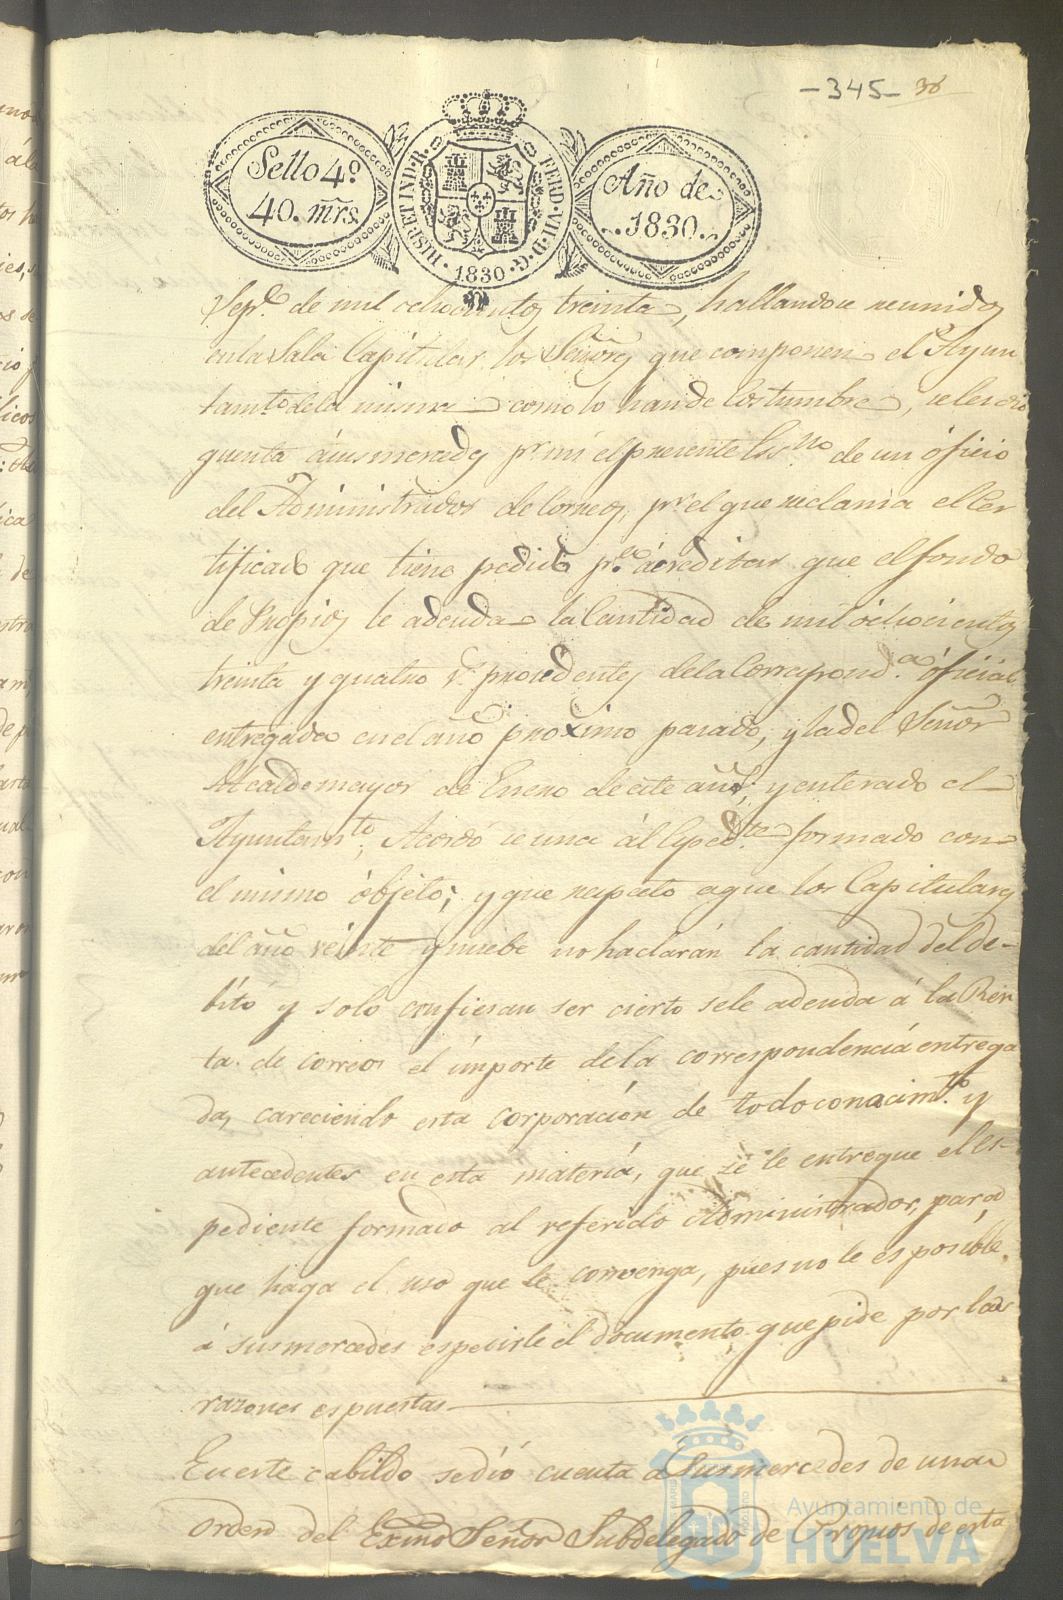 -345- 36
Sello 4º
40. mrs.
HISP. ET IND. R. FERD. VII. D. G.
1830
Año de
1830.
Sepre. de mil ochocientos treinta, hallandose reunidos
en la Sala Capitular los Señores que componen el Ayun
tamto. de la misma como lo han de costumbre, se les dio
quenta á sus mercedes pr. mi el presente Essno. de un óficio
del Administrador de Correos, pr. el que reclama el Cer
tificado que tiene pedido pa. ácreditar que el fondo
de Propios le adeuda la Cantidad de mil ochocientos
treinta y quatro rs. procedentes de la Correspond.a óficial
entregada en el año proximo pasado, y la del Señor
Alcalde mayor de Enero de este año; y enterado el
Ayuntamto., Acordó se una ál Espedte. formado con
el mismo óbjeto; y que respeto a que los Capitulares
del año veinte y nuebe no haclarán la cantidad del de-
bito y solo confiesan ser cierto sele adeuda á la Ren
ta de correos el importe de la correspondencia entrega
da, careciendo esta corporación de todo conocimto. y
antecedentes en esta materia, que se le entregue el es-
pediente formado al referido Administrador, para
que haga el uso que le convenga, pues no le es posible
á sus mercedes espedirle el documento que pide por las
razones espuestas
En este cabildo se dió cuenta á sus mercedes de una
orden del Exmo Señor Subdelegado de Propios de esta
Ayuntamiento de
HUELVA